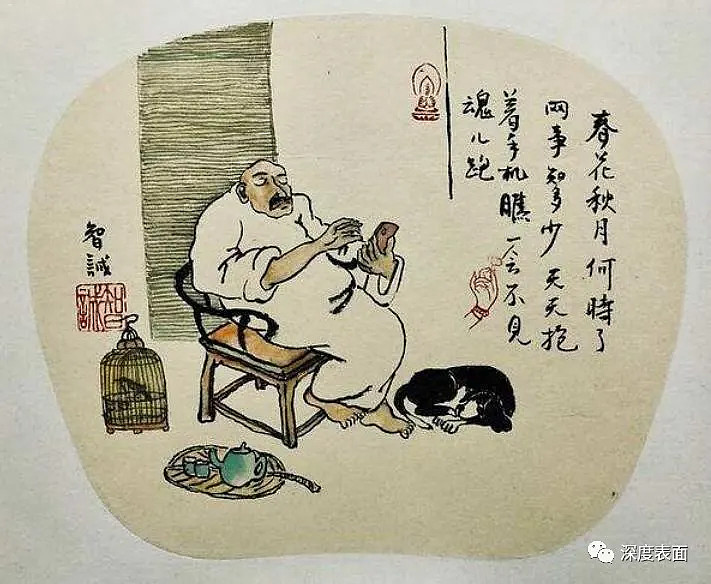 春花秋月何時了
网事知多少天天抱
着手机瞧一会不见
魂儿跑
智誠
智誠
深度表面